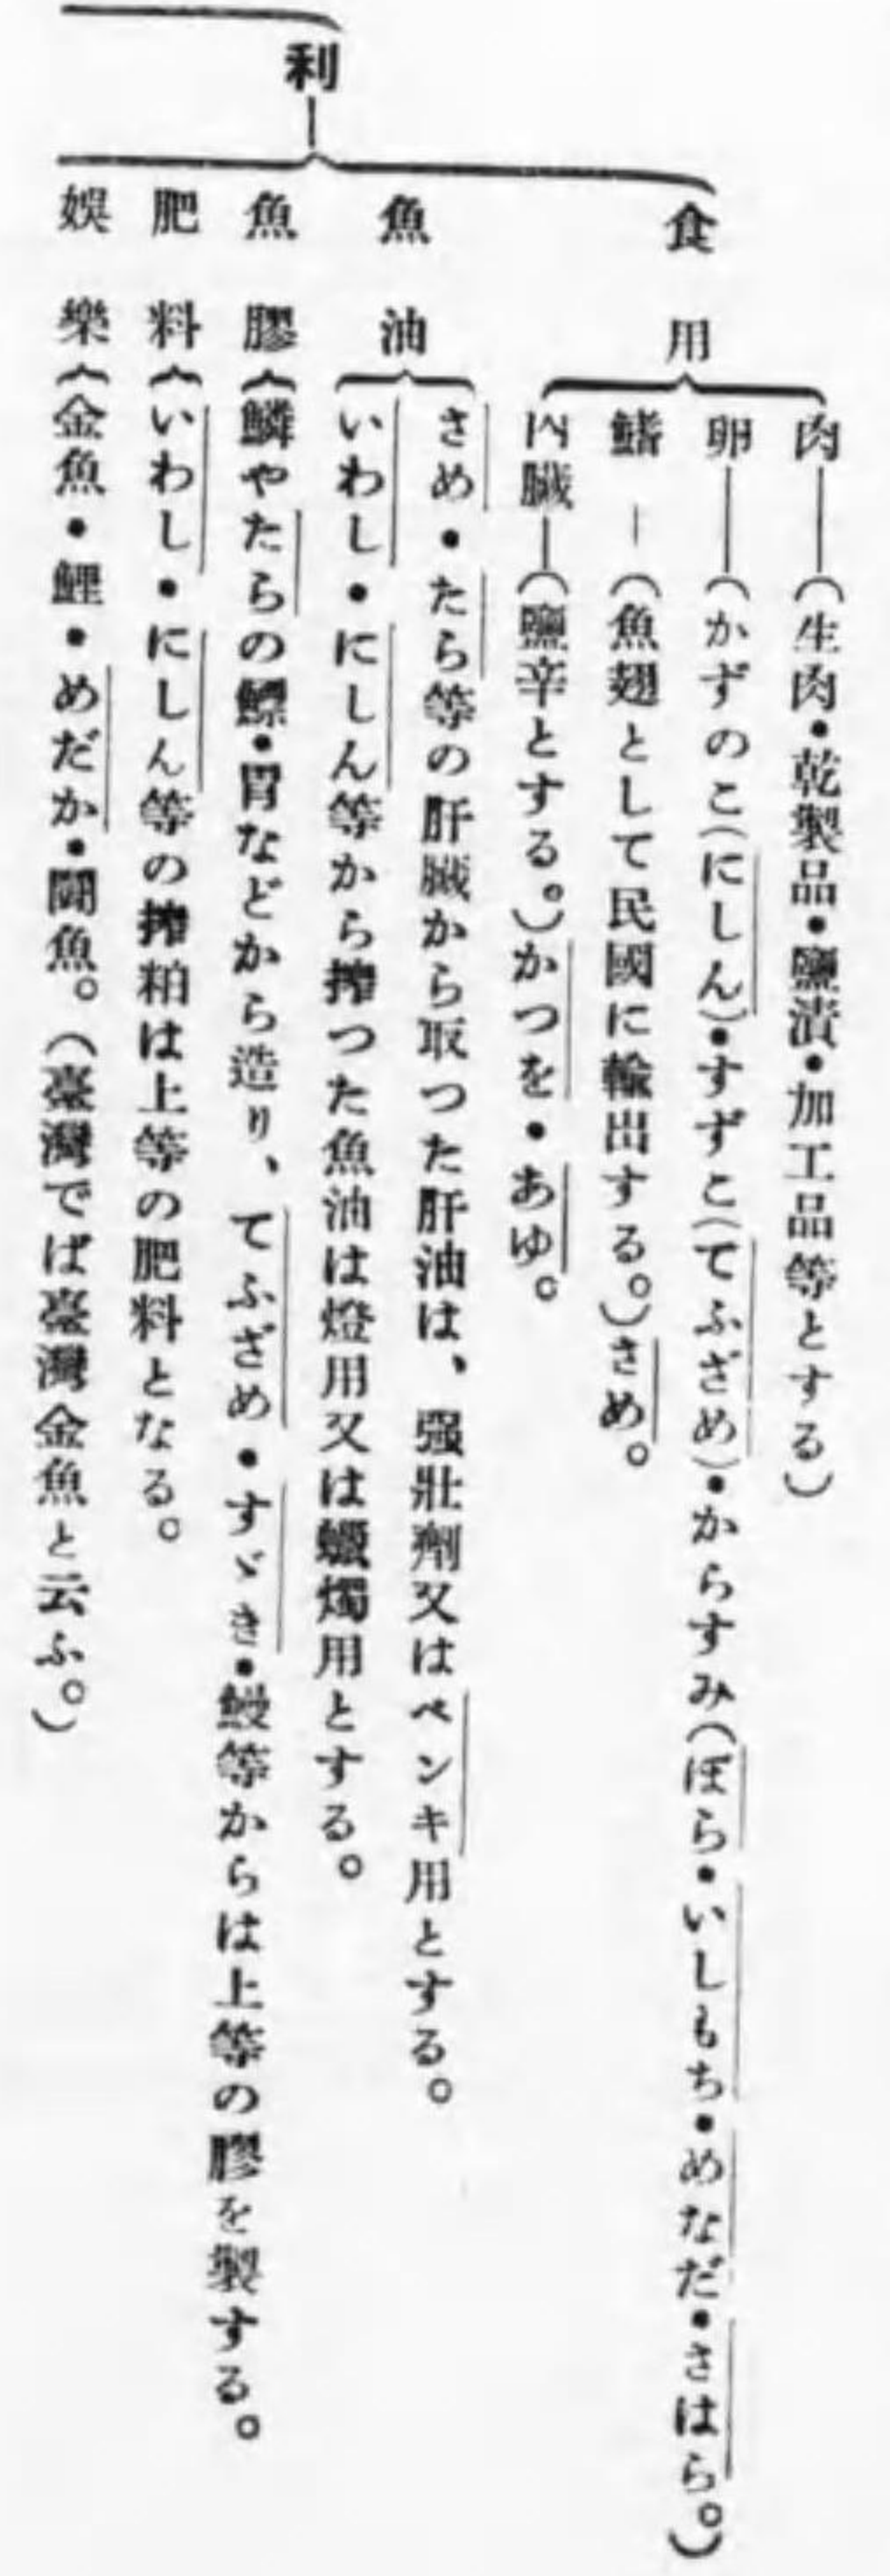 利
食用
肉――(生肉・乾製品・鹽漬・加工品等とする)
卵――(かずのこ(にしん)・すずこ(てふざめ)・からすみ(ぼら・いしもち・めなだ・さはら。)
鰭―(魚翅として民國に輸出する。)さめ。
内臟―(鹽辛とする。)かつを・あゆ。
魚油
さめ・たら等の肝臟から取つた肝油は、强壯劑又はペンキ用とする。
いわし・にしん等から搾つた魚油は燈用又は蠟燭用とする。
魚膠{鱗やたらの鰾・胃などから造り、てふざめ・すゞき・鰻等からは上等の膠を製する。
肥料{いわし・にしん等の搾粕は上等の肥料となる。
娛樂{金魚・鯉・めだか・鬪魚。(臺灣では臺灣金魚と云ふ。)